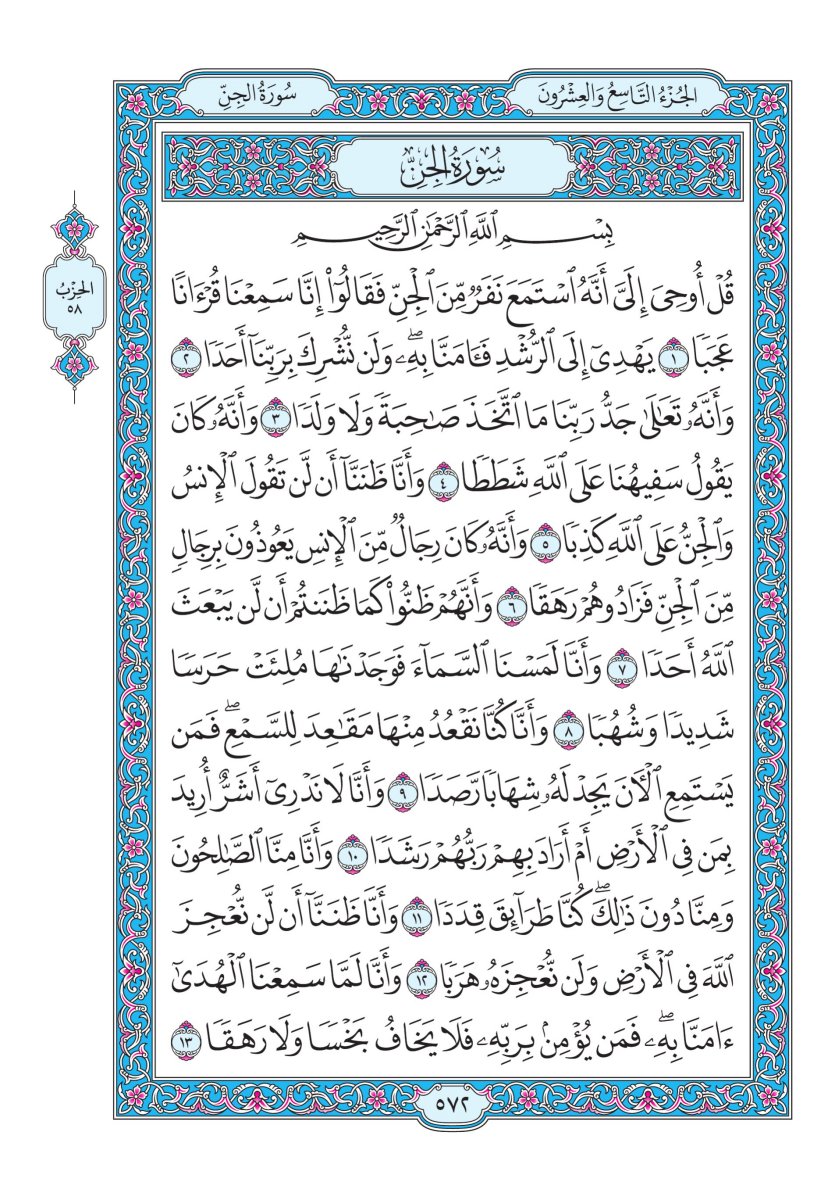 الجُزْءُ التَّاسِعُ وَالعِشْرُونَ
سُورَةُ الجِنِّ
سُورَةُ الجِنِّ
بِسْمِ ٱللَّهِ ٱلرَّحْمَٰنِ ٱلرَّحِيمِ
قُلْ أُوحِيَ إِلَيَّ أَنَّهُ ٱسْتَمَعَ نَفَرٌ مِّنَ ٱلْجِنِّ فَقَالُوٓا۟ إِنَّا سَمِعْنَا قُرْءَانًا
عَجَبًا ١ يَهْدِىٓ إِلَى ٱلرُّشْدِ فَـَٔامَنَّا بِهِۦۖ وَلَن نُّشْرِكَ بِرَبِّنَآ أَحَدًا ٢
وَأَنَّهُۥ تَعَٰلَىٰ جَدُّ رَبِّنَا مَا ٱتَّخَذَ صَٰحِبَةً وَلَا وَلَدًا ٣ وَأَنَّهُۥ كَانَ
يَقُولُ سَفِيهُنَا عَلَى ٱللَّهِ شَطَطًا ٤ وَأَنَّا ظَنَنَّآ أَن لَّن تَقُولَ ٱلْإِنسُ
وَٱلْجِنُّ عَلَى ٱللَّهِ كَذِبًا ٥ وَأَنَّهُۥ كَانَ رِجَالٌ مِّنَ ٱلْإِنسِ يَعُوذُونَ بِرِجَالٍ
مِّنَ ٱلْجِنِّ فَزَادُوهُمْ رَهَقًا ٦ وَأَنَّهُمْ ظَنُّوا۟ كَمَا ظَنَنتُمْ أَن لَّن يَبْعَثَ
ٱللَّهُ أَحَدًا ٧ وَأَنَّا لَمَسْنَا ٱلسَّمَآءَ فَوَجَدْنَٰهَا مُلِئَتْ حَرَسًا
شَدِيدًا وَشُهُبًا ٨ وَأَنَّا كُنَّا نَقْعُدُ مِنْهَا مَقَٰعِدَ لِلسَّمْعِۖ فَمَن
يَسْتَمِعِ ٱلْـَٔانَ يَجِدْ لَهُۥ شِهَابًا رَّصَدًا ٩ وَأَنَّا لَا نَدْرِىٓ أَشَرٌّ أُرِيدَ
بِمَن فِى ٱلْأَرْضِ أَمْ أَرَادَ بِهِمْ رَبُّهُمْ رَشَدًا ١٠ وَأَنَّا مِنَّا ٱلصَّٰلِحُونَ
وَمِنَّا دُونَ ذَٰلِكَۖ كُنَّا طَرَآئِقَ قِدَدًا ١١ وَأَنَّا ظَنَنَّآ أَن لَّن نُّعْجِزَ
ٱللَّهَ فِى ٱلْأَرْضِ وَلَن نُّعْجِزَهُۥ هَرَبًا ١٢ وَأَنَّا لَمَّا سَمِعْنَا ٱلْهُدَىٰٓ
ءَامَنَّا بِهِۦۖ فَمَن يُؤْمِنۢ بِرَبِّهِۦ فَلَا يَخَافُ بَخْسًا وَلَا رَهَقًا ١٣
الحِزْبُ
٥٨
٥٧٢